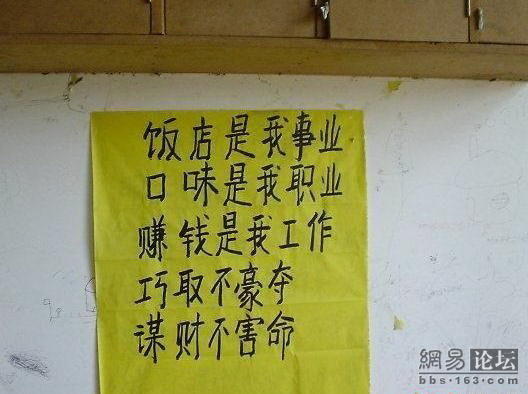 饭店是我事业
口味是我职业
赚钱是我工作
巧取不豪夺
谋财不害命
網易论坛
bbs·163·com